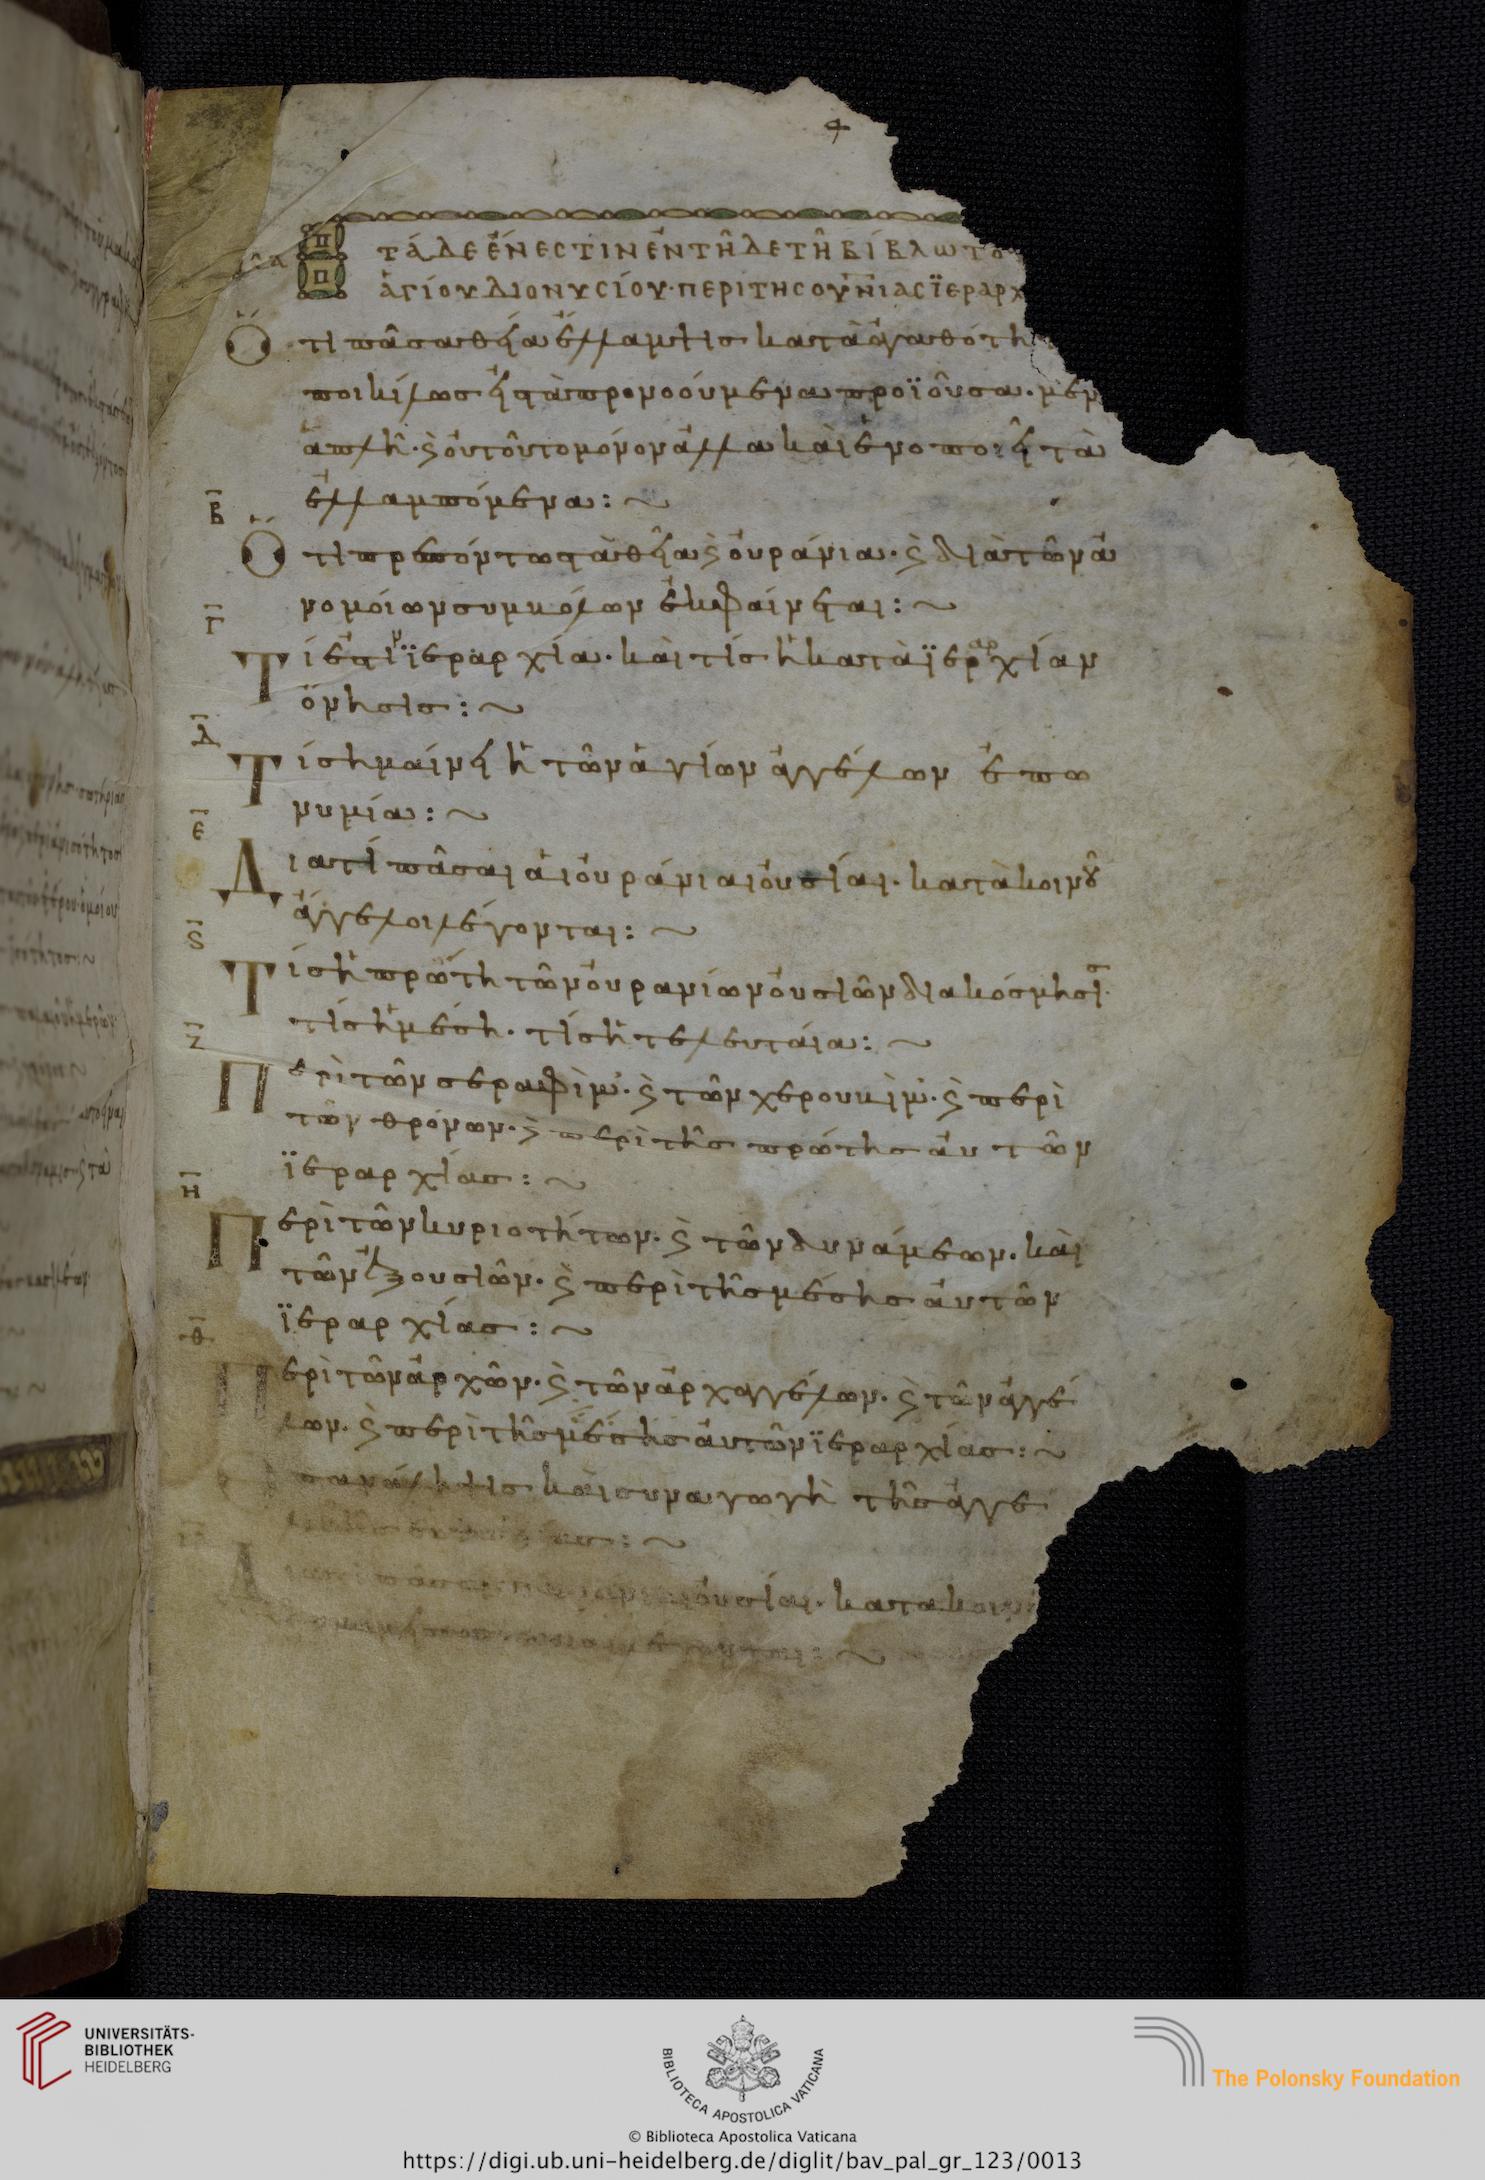 4
τάδε ἔνεστιν ἐν τῆδε τῆ βίβλω το
ἁγίου Διονυσίου· περὶ τῆς οὐνίας ϊεραρχ
Ὅτι πᾶσα θεία ἔλλαμψις κατὰ ἀγαθότη
ποικίλως εἰς τὰ προνοούμενα προϊοῦσα· μέν
ἁπλῆ· καὶ οὐ τοῦτο μόνον ἀλλα καὶ ἑνοποιεῖ τὰ
ἐλλαμπόμενα: ~
Β
Ὅτι πρεπόντως τὰ θεῖα καὶ οὐράνια· καὶ διὰ τῶν ἀ
νομοίων συμβόλων ἐκφαίνεται: ~
Γ
Τί ἐστιν ϊεραρχία· καὶ τίς ἡ κατὰ ϊεραρχίαν
ὄνησις: ~
Δ
Τί σημαίνει ἡ τῶν ἁγίων ἀγγέλων ἐπω
νυμία: ~
Ε
Διατί πᾶσαι αἱ οὐράνιαι οὐσίαι· κατὰ κοινοῦ
ἄγγελοι λέγονται: ~
Ϛ
Τίς ἡ πρώτη τῶν οὐρανίων οὐσιῶν διακόσμησις·
τίς ἡ μέση· τίς ἡ τελευταία: ~
Ζ
Περὶ τῶν σεραφὶμ· καὶ τῶν χερουβὶμ· καὶ περὶ
τῶν θρόνων· καὶ περὶ τῆς πρώτης αὐτῶν
ϊεραρχίας: ~
Η
Περὶ τῶν κυριοτήτων· καὶ τῶν δυνάμεων· καὶ
τῶν ἐξουσιῶν· καὶ περὶ τῆς μέσης αὐτῶν
ϊεραρχίας: ~
Θ
Περὶ τῶν ἀρχῶν· καὶ τῶν ἀρχαγγέλων· καὶ τῶν ἀγγέ
λων· καὶ περὶ τῆς μέσης αὐτῶν ϊεραρχίας: ~
πανάληψις καὶ συναγωγὴ τῆς ἀγγε
: ~
Δ οὐσίαι· κατα κοιν
: ~
UNIVERSITÄTS-
BIBLIOTHEK
HEIDELBERG
BIBLIOTECA APOSTOLICA VATICANA
The Polonsky Foundation
© Biblioteca Apostolica Vaticana
https://digi.ub.uni-heidelberg.de/diglit/bav_pal_gr_123/0013